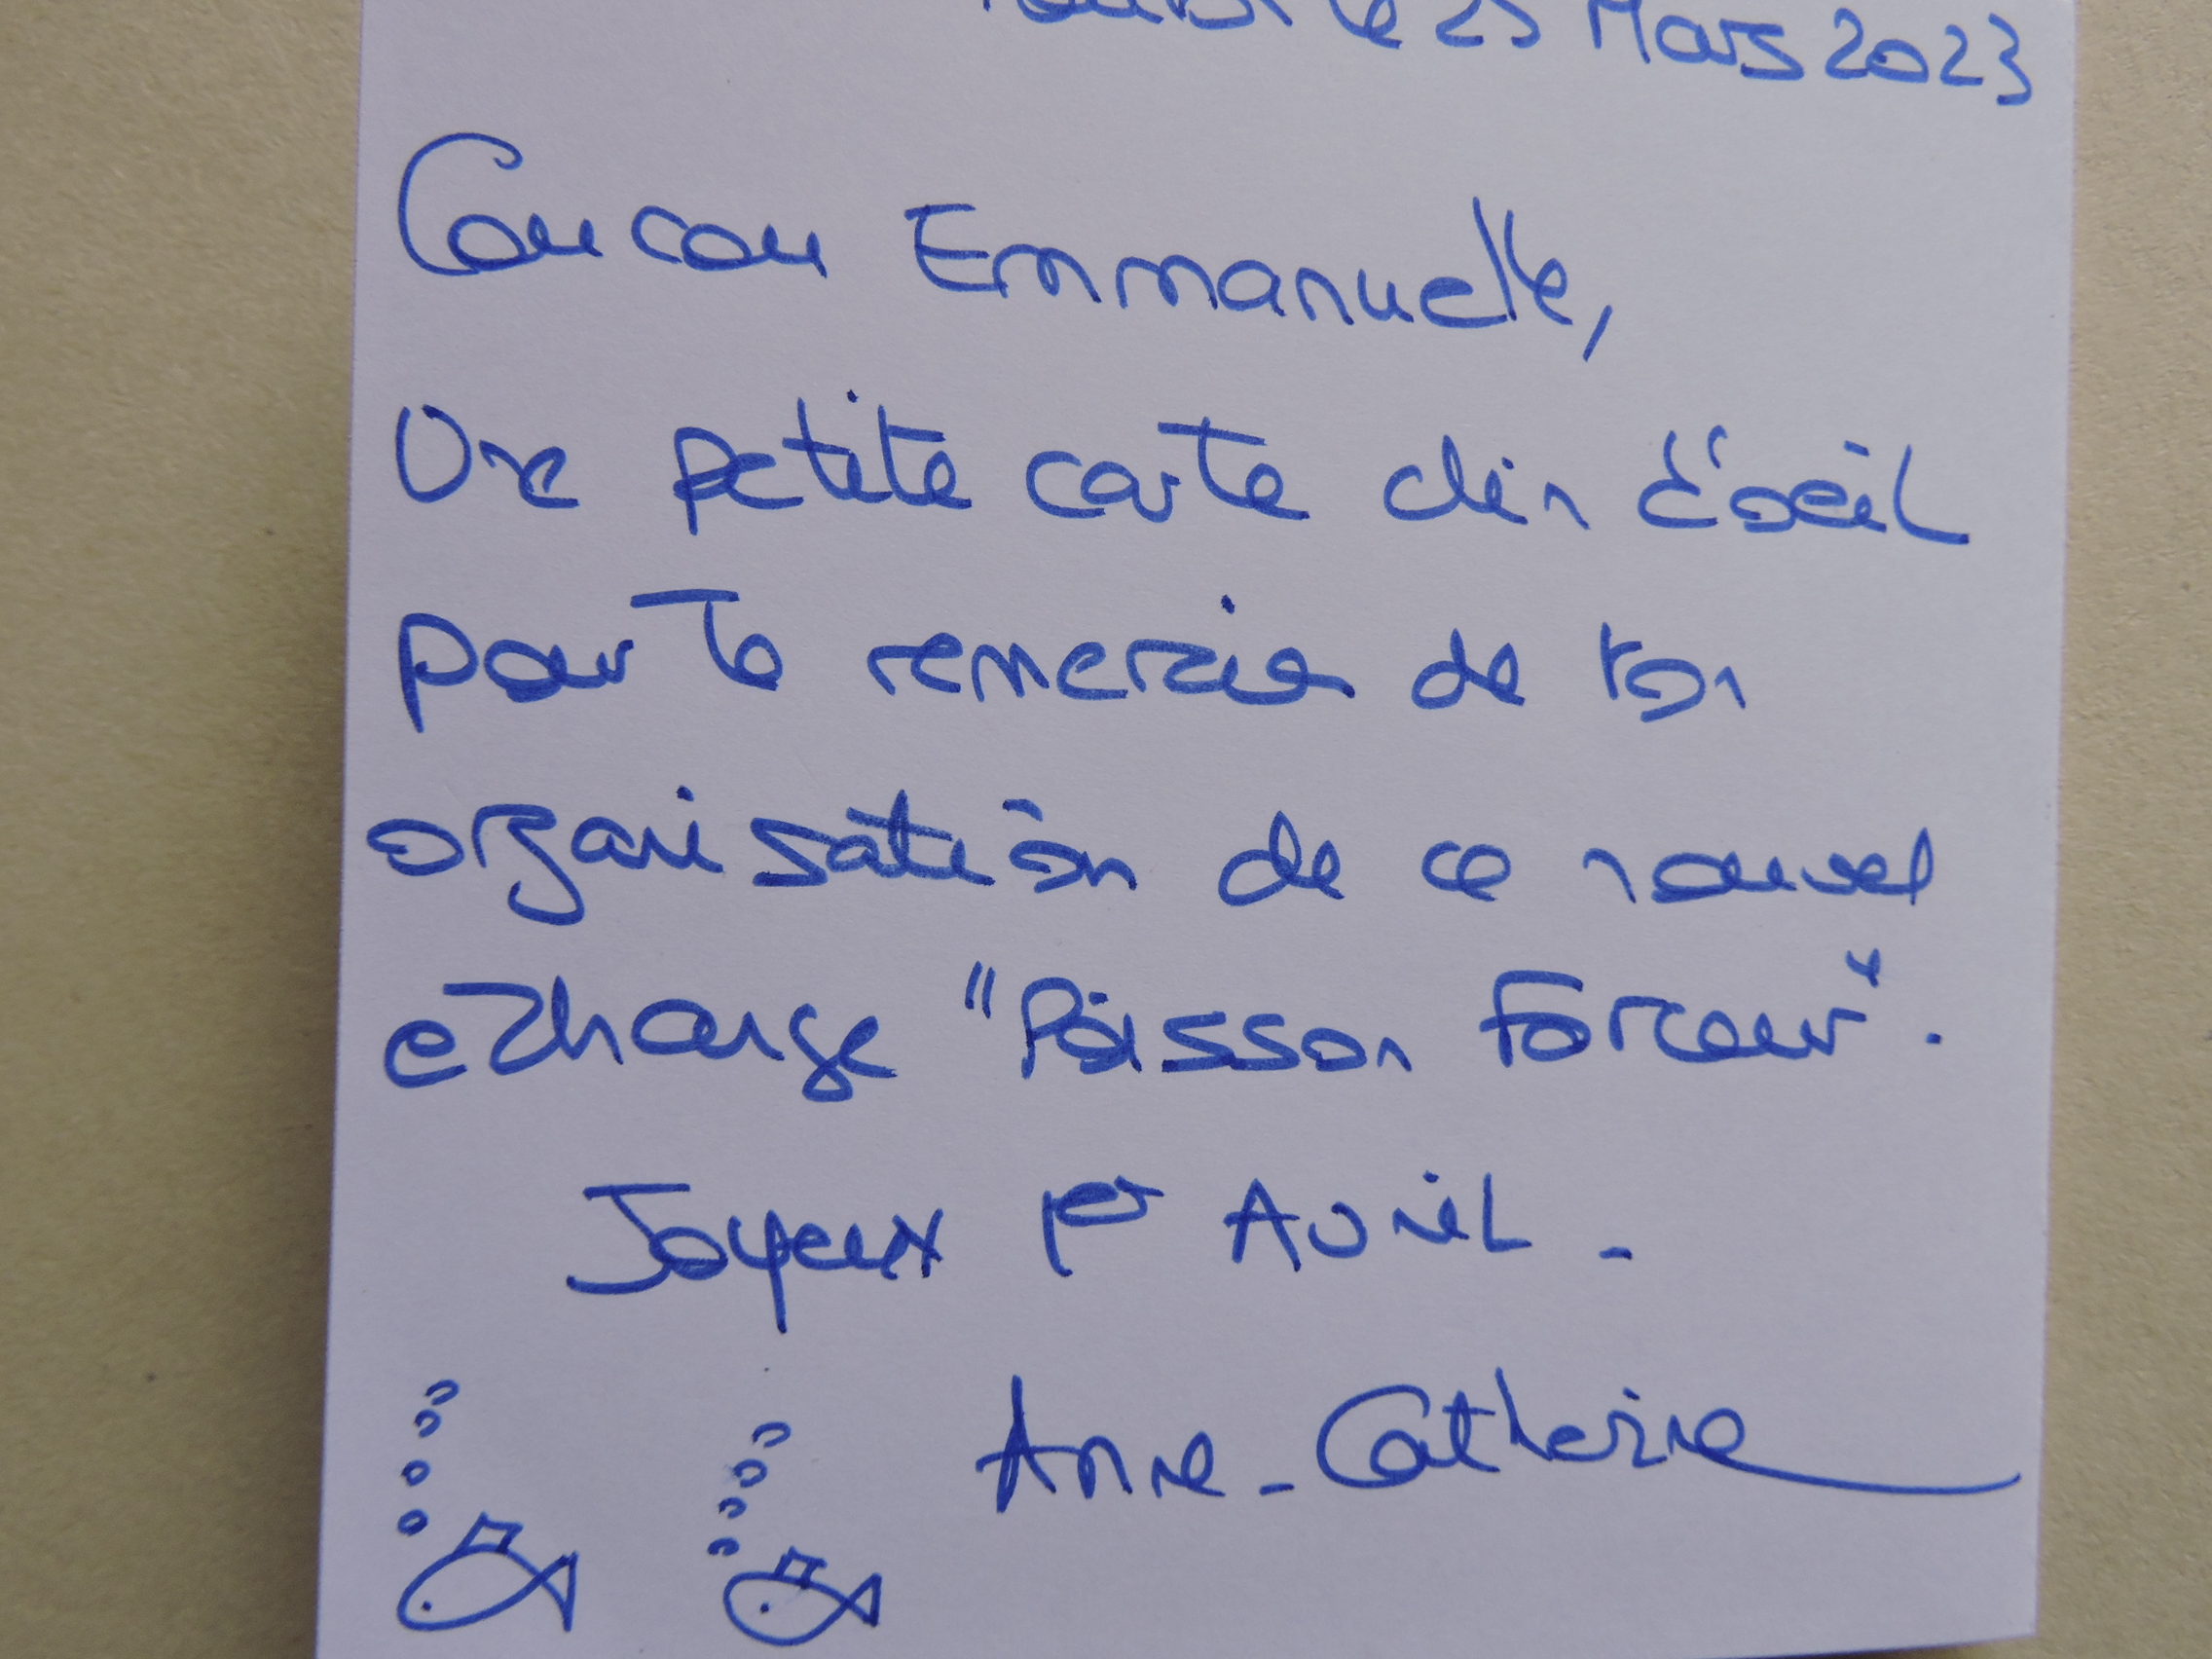 le 25 Mars 2023
Coucou Emmanuelle,
Une petite carte clin d'oeil
pour te remercier de ton
organisation de ce nouvel
echange "Poisson Farceur".
Joyeux 1er Avril -
Anne-Catherine